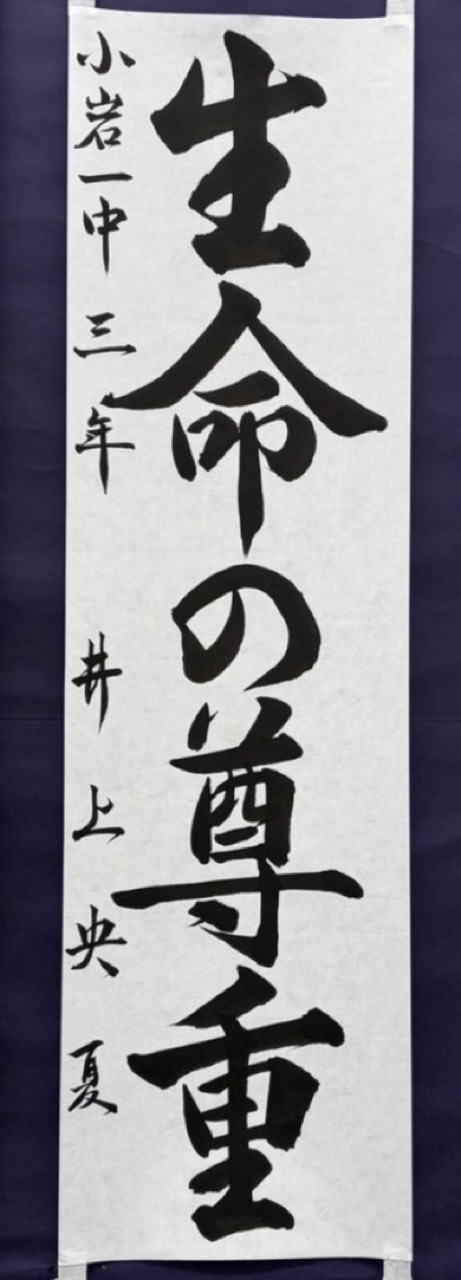 生命の尊重
小岩一中 三年 井上央夏